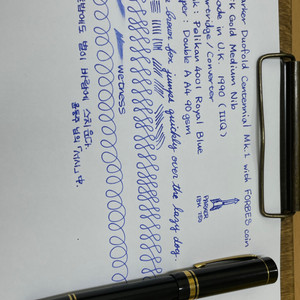 Parker Duofold Centennial Mk.I with FORBES coin
18K Gold Medium Nib
Made in U.K. 1990 (IIIQ)
Cartridge / Converter
Ink : Pelikan 4001 Royal Blue
Paper : Double A A4 90gsm
brown fox jumps quickly over the lazy dog.
wetness
PARKER
18K 750
별이 바람에 스치운다.